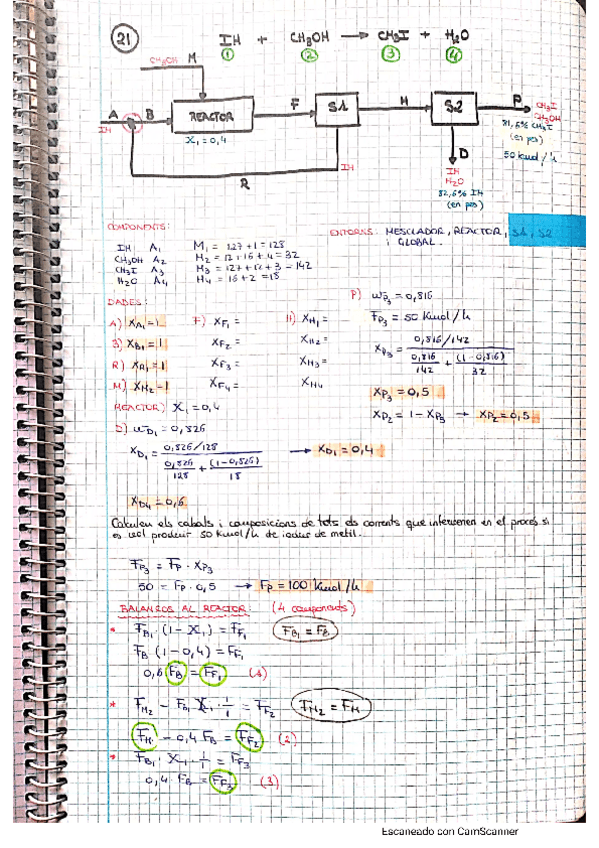 21 IH + CH3OH → CH3I + H2O
1 2 3 4
CH3OH M
A B REACTOR F S1 H S2 P
IH X1 = 0,4
CH3I
CH3OH
81,6% CH3I
(en pes)
50 kmol/h
R IH D
IH
H2O
82,6% IH
(en pes)
COMPONENTS:
IH A1 M1 = 127+1 = 128
CH3OH A2 M2 = 12+16+4 = 32
CH3I A3 M3 = 127+12+3 = 142
H2O A4 M4 = 16+2 = 18
ENTORNS: MESCLADOR, REACTOR, S1, S2
i GLOBAL.
DADES:
A) XA1 = 1
B) XB1 = 1
R) XR1 = 1
M) XM2 = 1
F) XF1 =
XF2 =
XF3 =
XF4 =
H) XH1 =
XH2 =
XH3 =
XH4
P) WP3 = 0,816
FP3 = 50 Kmol/h
XP3 = 0,816/142 / (0,816/142 + (1-0,816)/32)
XP3 = 0,5
XP2 = 1 - XP3 → XP2 = 0,5
REACTOR) X1 = 0,4
D) WD1 = 0,826
XD1 = 0,826/128 / (0,826/128 + (1-0,826)/18) → XD1 = 0,4
XD4 = 0,6
Calculeu els cabals i composicions de tots els corrents que intervenen en el procés si
es vol produir 50 kmol/h de iodur de metil.
FP3 = FP · XP3
50 = FP · 0,5 → FP = 100 Kmol/h
BALANÇOS AL REACTOR: (4 components)
* FB1 · (1 - X1) = FF1 FB1 = FB
FB (1 - 0,4) = FF1
0,6 FB = FF1 (1)
* FM2 - FB1 X1 · 1/1 = FF2 FM2 = FM
FM - 0,4 FB = FF2 (2)
* FB1 · X1 · 1/1 = FF3
0,4 · FB = FF3 (3)
Escaneado con CamScanner